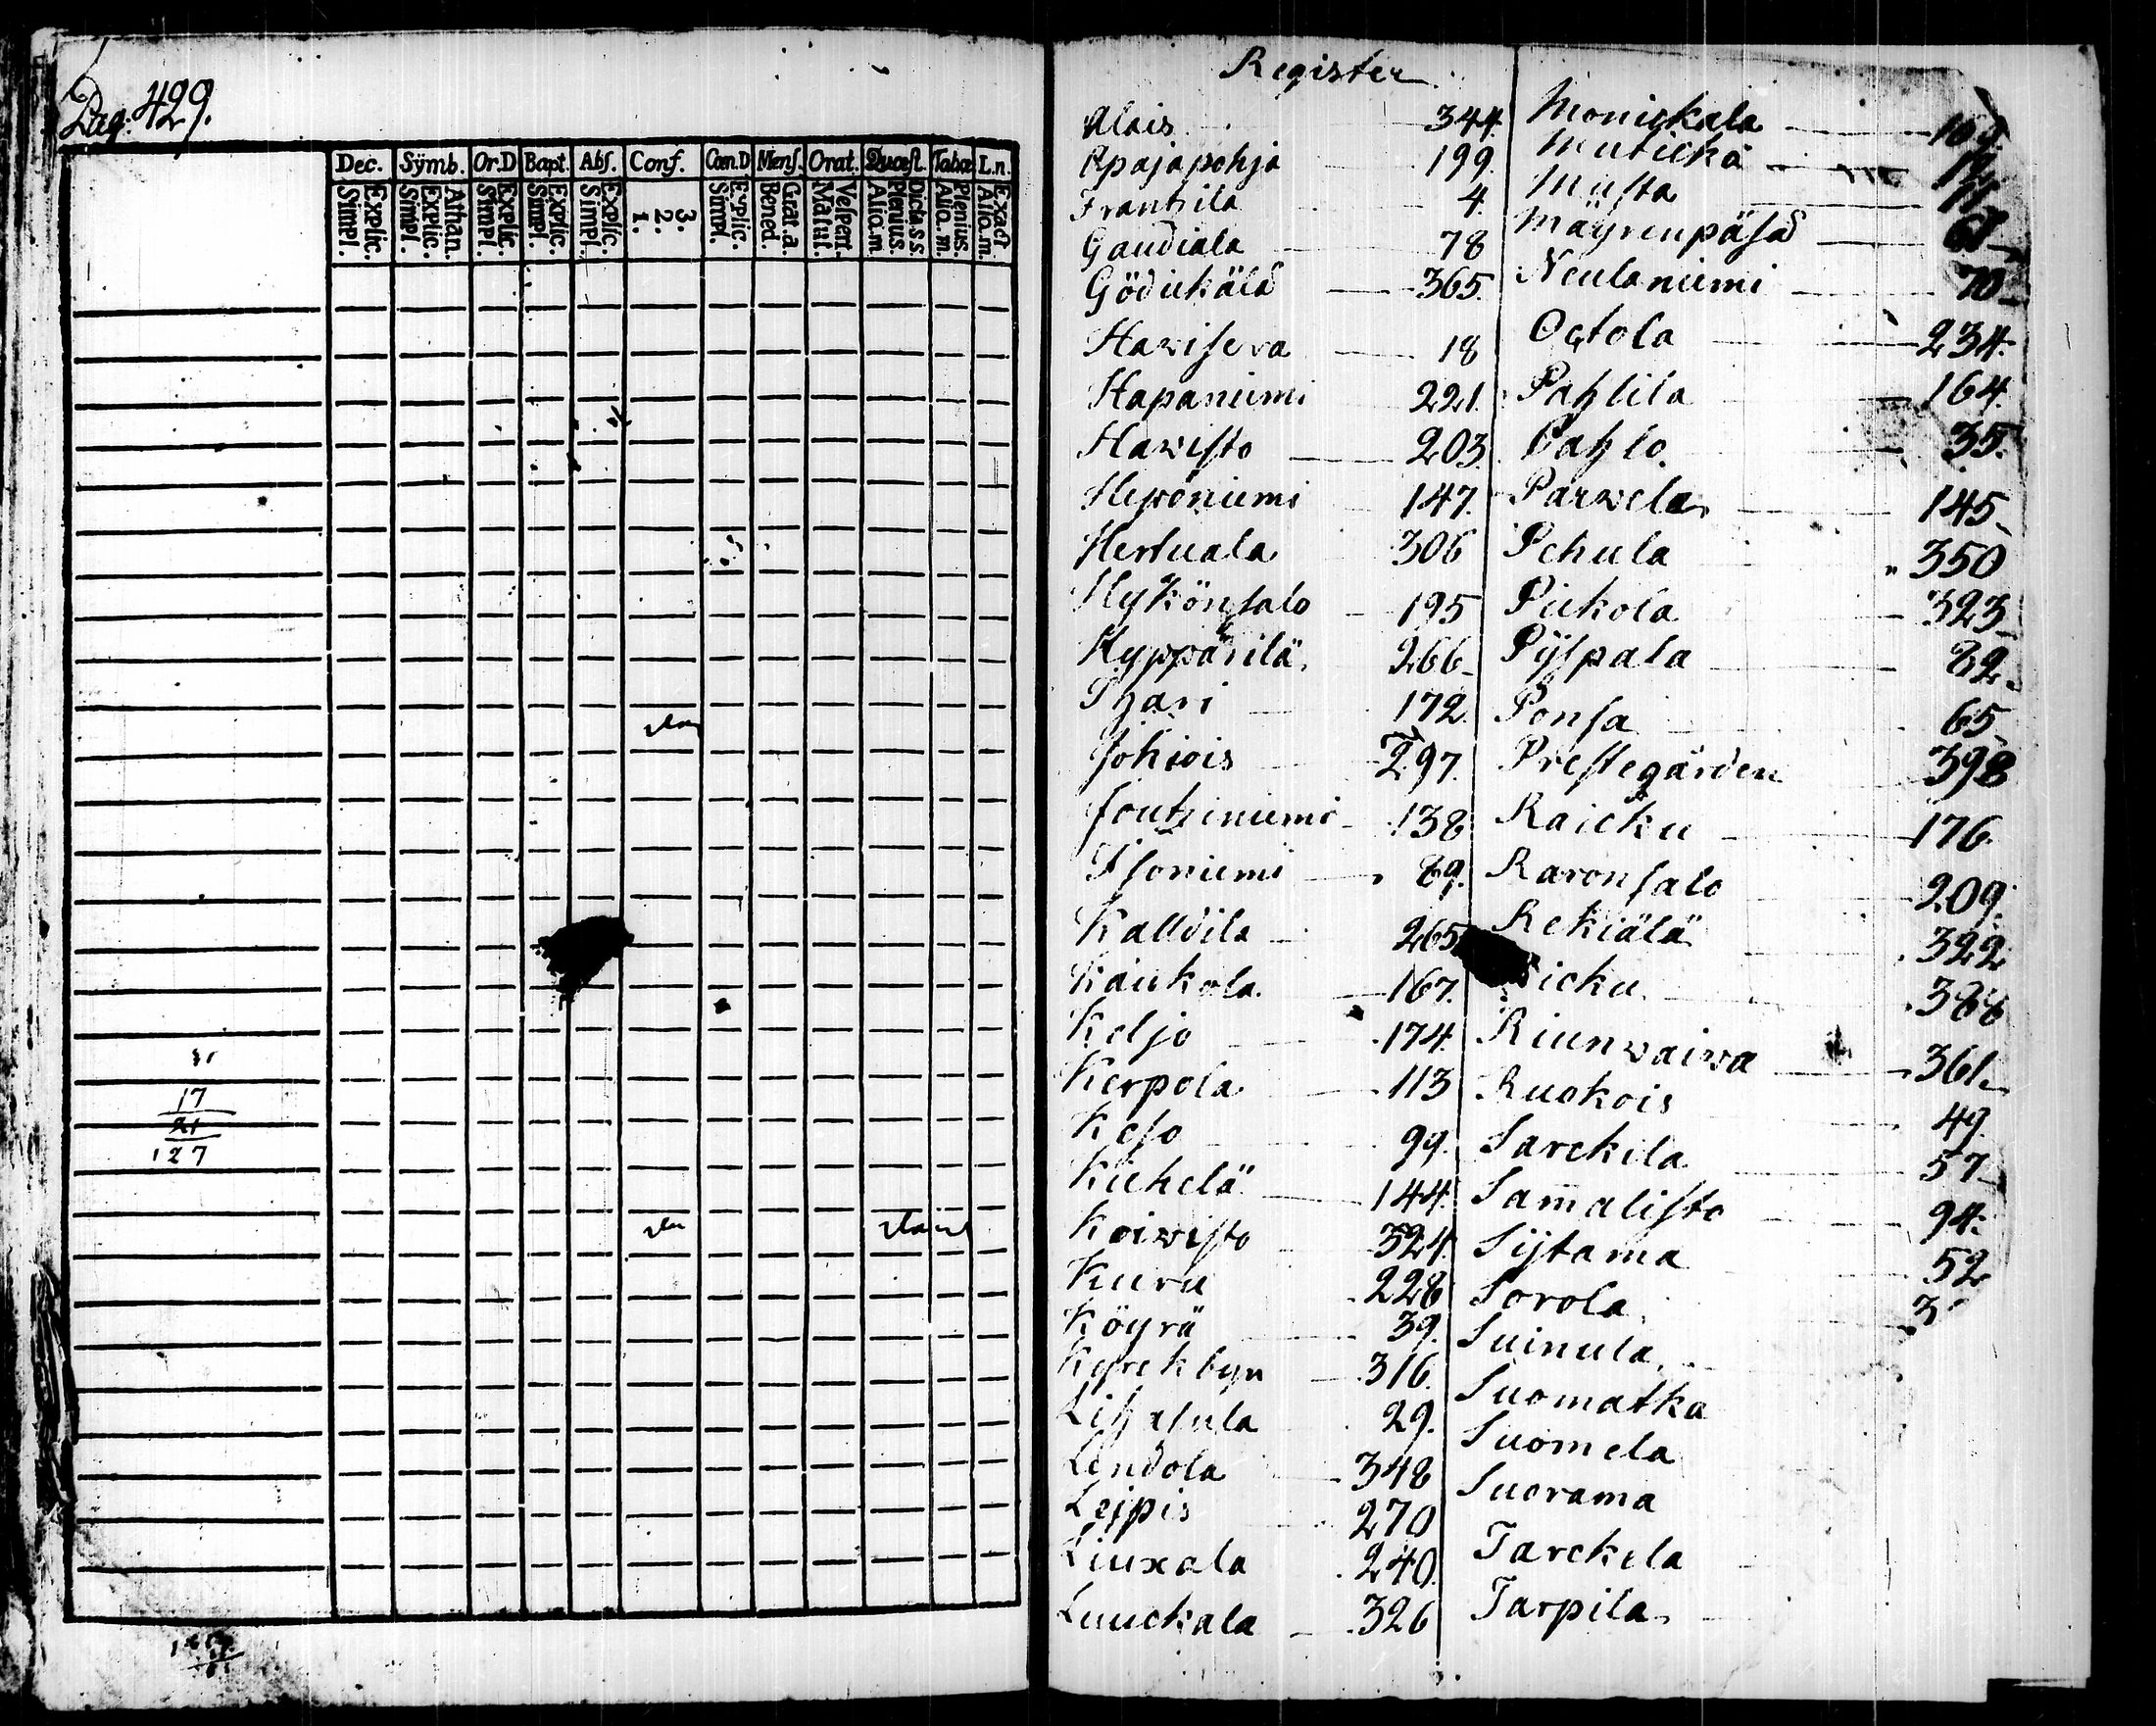 Pag: 429.
Dec. Sÿmb. Or.D Bapt. Abs. Conf. Cœn.D Mens. Orat. Quæst. Tabæ L.n.
Explic. Simpl.
Athan. Explic. Simpl.
Explic. Simpl.
Explic. Simpl.
Explic. Simpl.
3. 2. 1.
Explic. Simpl.
Grat.a. Bened.
Vespert. Matut.
Dicta s.s. Plenius. Aliq.m.
Plenius. Aliq.m.
Exact Aliq.m.
17
21
127
Register
Alais 344.
Apajapohja 199.
Frantzila 4.
Gaudiala 78
Gödickälä 365.
Hawiseva 18
Hapaniemi 221.
Hawisto 203.
Heponiemi 147.
Hertuala 306
Hykönsalo 195
Hyppärilä 266
Ihari 172.
Johiois 297.
Joutziniemi 138
Isoniemi 89.
Kalldila 265
Kaukola 167.
Keljo 174.
Kerpola 113
Keso 99.
Kiehelä 144.
Koiwisto 324.
Kuuru 228
Köyrä 39.
Kyrckbyn 316.
Lihasula 29.
Lendola 348
Leipis 270
Liuxala 240.
Luuckala 326
Monickala 109.
Mutickä
Musta
Mäyrenpäsä
Neulaniemi 70
Octola 234.
Pahlila 164.
Pahlo 35.
Parwela 145
Pehula 350
Pickola 323
Pijspala 82
Ponsa 65
Prestegården 398
Raicku 176.
Raronsalo 209.
Rekiälä 322
icku 388
Riunwaiva 361
Ruokois 49.
Sarckila 57
Sam̄alisto 94.
Sijtama 52
Sorola 3
Suinula
Suomatka
Suomela
Suorama
Tarckela
Tarpila